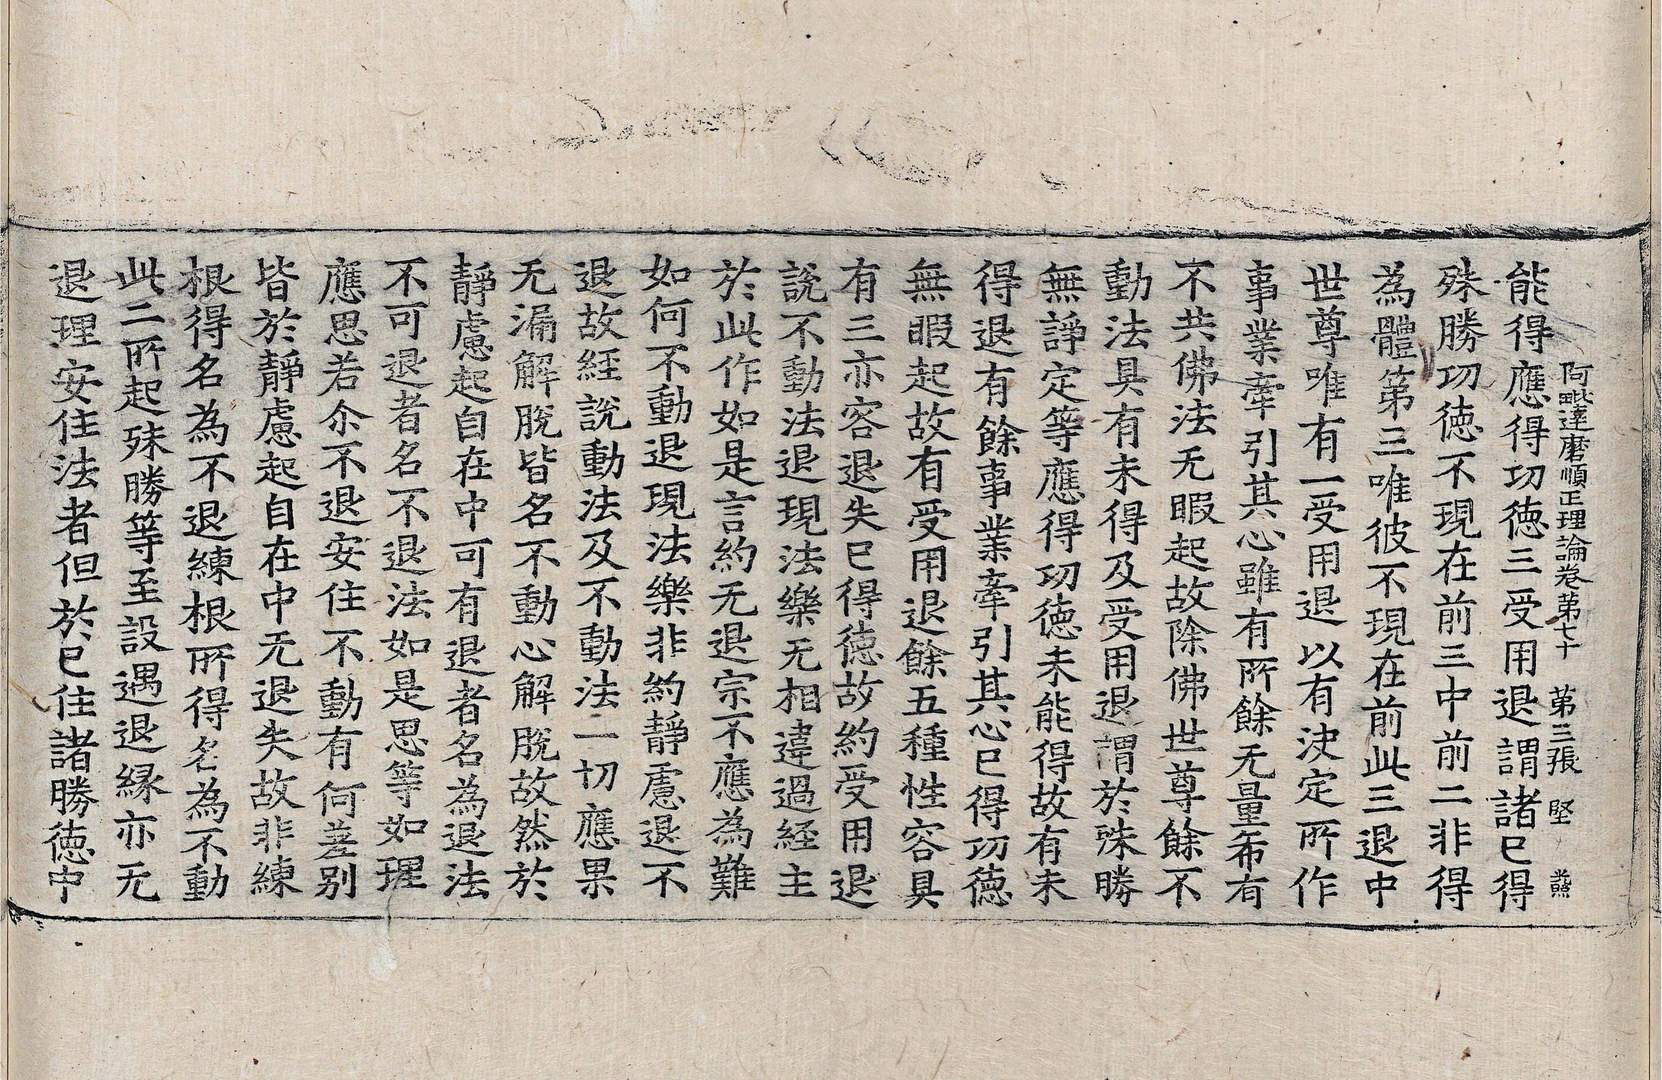 阿毗達磨順正理論卷第七十　第三張　堅
能得應得功徳三受用退謂諸已得
殊勝功徳不現在前三中前二非得
為體第三唯彼不現在前此三退中
世尊唯有一受用退以有決定所作
事業牽引其心雖有所餘无量希有
不共佛法无暇起故除佛世尊餘不
動法具有未得及受用退謂於殊勝
無諍定等應得功徳未能得故有未
得退有餘事業牽引其心已得功徳
無暇起故有受用退餘五種性容具
有三亦容退失已得徳故約受用退
說不動法退現法樂无相違過経主
於此作如是言約无退宗不應為難
如何不動退現法樂非約靜慮退不
退故経說動法及不動法一切應果
无漏解脫皆名不動心解脫故然於
靜慮起自在中可有退者名為退法
不可退者名不退法如是思等如理
應思若尒不退安住不動有何差別
皆於靜慮起自在中无退失故非練
根得名為不退練根所得名為不動
此二所起殊勝等至設遇退縁亦无
退理安住法者但於已住諸勝徳中